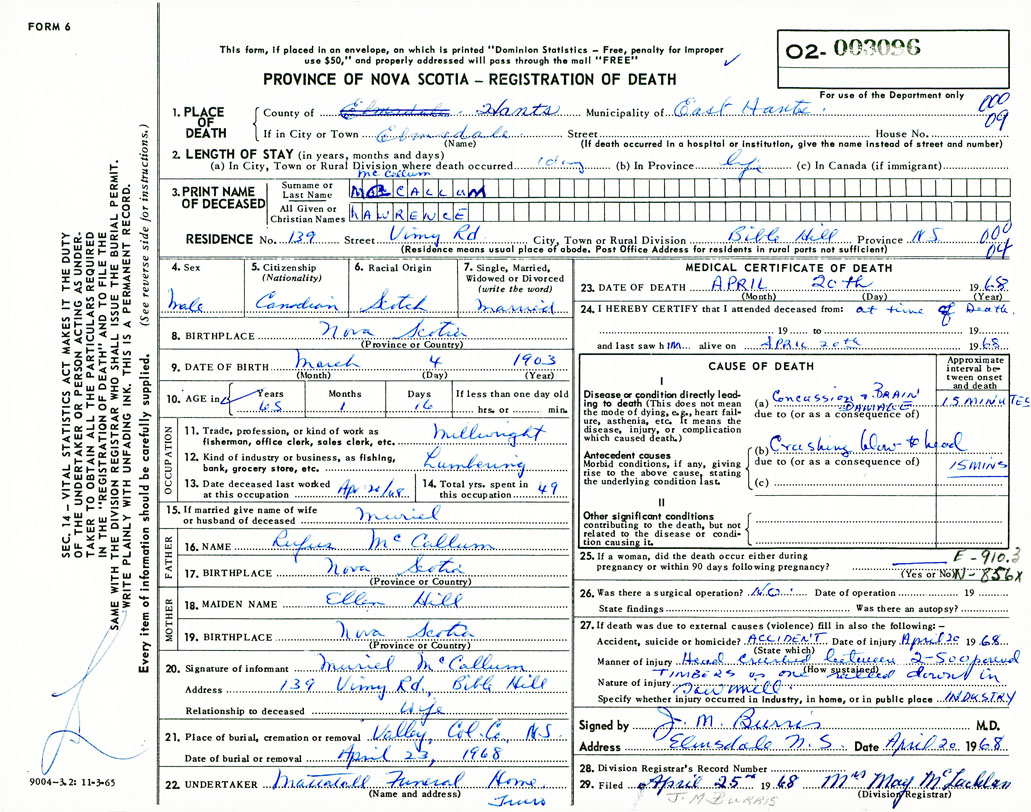 FORM 6
This form, if placed in an envelope, on which is printed "Dominion Statistics – Free, penalty for improper
use $50," and properly addressed will pass through the mail "FREE"
O2- 003096
PROVINCE OF NOVA SCOTIA – REGISTRATION OF DEATH
For use of the Department only
000
09
1. PLACE OF DEATH County of Elmsdale Hants Municipality of East Hants
If in City or Town Elmsdale Street House No.
(Name) (If death occurred in a hospital or institution, give the name instead of street and number)
2. LENGTH OF STAY (in years, months and days)
(a) In City, Town or Rural Division where death occurred 1 day (b) In Province life (c) In Canada (if immigrant)
Mc Callum
3. PRINT NAME OF DECEASED Surname or Last Name CALLUM
All Given or Christian Names LAWRENCE
RESIDENCE No. 139 Street Vimy Rd City, Town or Rural Division Bible Hill Province N.S.
(Residence means usual place of abode. Post Office Address for residents in rural parts not sufficient)
000
04
4. Sex Male
5. Citizenship (Nationality) Canadian
6. Racial Origin Scotch
7. Single, Married, Widowed or Divorced (write the word) Married
8. BIRTHPLACE Nova Scotia
(Province or Country)
9. DATE OF BIRTH March 4 1903
(Month) (Day) (Year)
10. AGE in Years 65 Months 1 Days 16 If less than one day old hrs. or min.
OCCUPATION
11. Trade, profession, or kind of work as fisherman, office clerk, sales clerk, etc. Millwright
12. Kind of industry or business, as fishing, bank, grocery store, etc. Lumbering
13. Date deceased last worked at this occupation Apr 20/68 14. Total yrs. spent in this occupation 49
15. If married give name of wife or husband of deceased Muriel
FATHER
16. NAME Rufus McCallum
17. BIRTHPLACE Nova Scotia
(Province or Country)
MOTHER
18. MAIDEN NAME Ellen Hill
19. BIRTHPLACE Nova Scotia
(Province or Country)
20. Signature of informant Muriel McCallum
Address 139 Vimy Rd., Bible Hill
Relationship to deceased Wife
21. Place of burial, cremation or removal Valley, Col. Co. N.S.
Date of burial or removal April 23, 1968
22. UNDERTAKER Mattatall Funeral Home
(Name and address) Truro
MEDICAL CERTIFICATE OF DEATH
23. DATE OF DEATH APRIL 20th 1968
(Month) (Day) (Year)
24. I HEREBY CERTIFY that I attended deceased from: at time of Death.
19 to 19
and last saw him alive on APRIL 20th 1968
CAUSE OF DEATH
Approximate interval between onset and death
I
Disease or condition directly leading to death (This does not mean the mode of dying, e.g., heart failure, asthenia, etc. It means the disease, injury, or complication which caused death.)
(a) Concussion & BRAIN DAMAGE 15 MINUTES
due to (or as a consequence of)
Antecedent causes
Morbid conditions, if any, giving rise to the above cause, stating the underlying condition last.
(b) Crushing blow to head 15 MINS
due to (or as a consequence of)
(c)
II
Other significant conditions
contributing to the death, but not related to the disease or condition causing it.
25. If a woman, did the death occur either during pregnancy or within 90 days following pregnancy?
(Yes or No)
E-910.3
N-856X
26. Was there a surgical operation? No. Date of operation 19
State findings Was there an autopsy?
27. If death was due to external causes (violence) fill in also the following:–
Accident, suicide or homicide? ACCIDENT Date of injury April 20 1968
(State which)
Manner of injury Head crushed between 2-500 pound
(How sustained)
TIMBERS as one rolled down in
Nature of injury Saw mill
Specify whether injury occurred in industry, in home, or in public place INDUSTRY
Signed by J. M. Burris M.D.
Address Elmsdale N.S. Date April 20 1968
28. Division Registrar's Record Number
29. Filed April 25th 1968 Mrs May McLachlan
(Division Registrar)
J. M. BURRIS
SEC. 14 – VITAL STATISTICS ACT MAKES IT THE DUTY
OF THE UNDERTAKER OR PERSON ACTING AS UNDER-
TAKER TO OBTAIN ALL THE PARTICULARS REQUIRED
IN THE "REGISTRATION OF DEATH" AND TO FILE THE
SAME WITH THE DIVISION REGISTRAR WHO SHALL ISSUE THE BURIAL PERMIT.
WRITE PLAINLY WITH UNFADING INK. THIS IS A PERMANENT RECORD.
Every item of information should be carefully supplied. (See reverse side for instructions.)
9004-3.2: 11-3-65